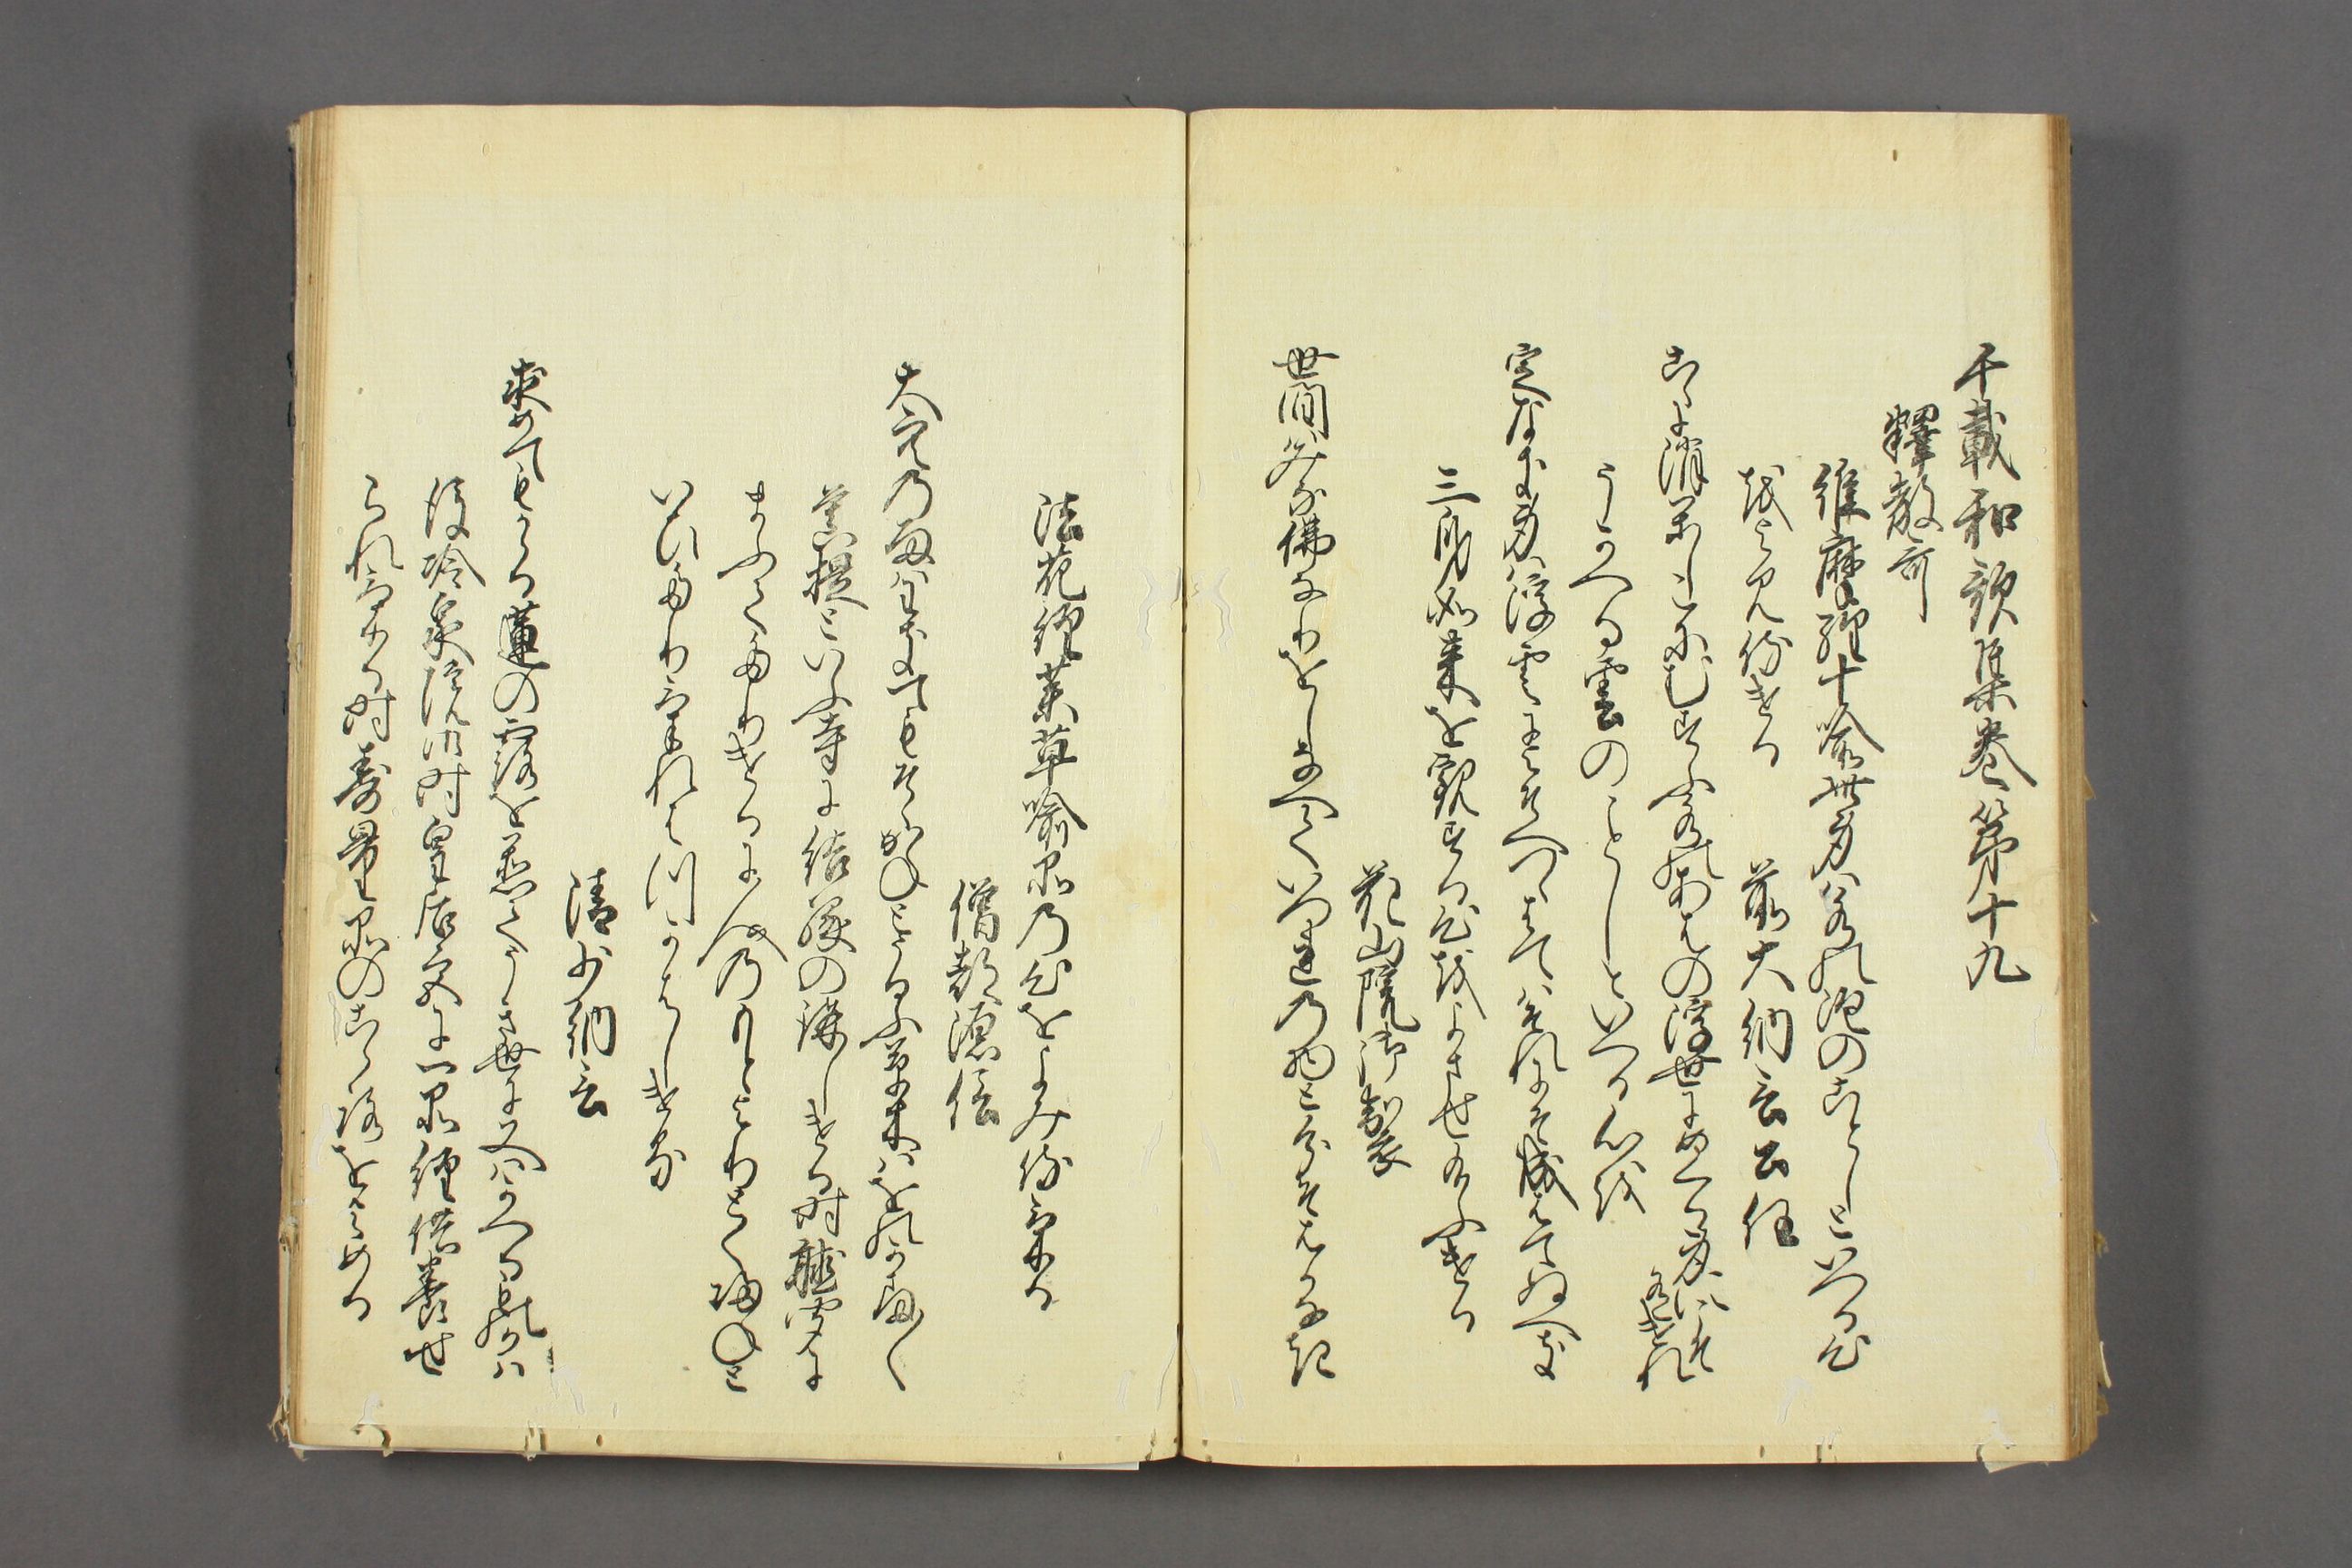 千載和歌集巻第十九
釋教哥
維摩經十喩此身は水の泡のことしといへる心
をよみ侍ける 前大納言公任
こゝに消かしこにむすふ水のあはの浮世にめくる身にこそ有けれ
うかへる雲のことしといへる心を
定なき身は浮雲によそへつゝはてはそれにそ成はてぬへき
三身如来を観する心をよませ給ふける
花山院御製
世間はみな佛なりをしなへていつれの物とわくそはかなき
法花經薬草喩品の心をよみ侍ける
僧都源信
大空の雨はわきてもそゝかねとうるふ草木はをのかしな〳〵
菩提といふ寺に結縁の講しける時聴聞に
まうてたりけるに人のもとよりとく帰ねと
いひたりけれはつかはしける
清少納言
求めてもかゝる蓮の露を置てうき世に又はかへるものかは
後冷泉院御時皇后宮に一品經供養せ
られける時壽量品のこゝろをよめる